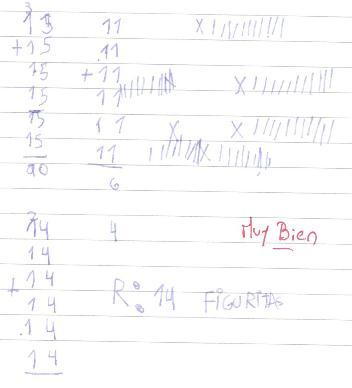 15 11
+15 11
15 +11
15 11
15 11
15 11
90 6
14 4 Muy Bien
14
+14
14 R: 14 FIGURITAS
14
14